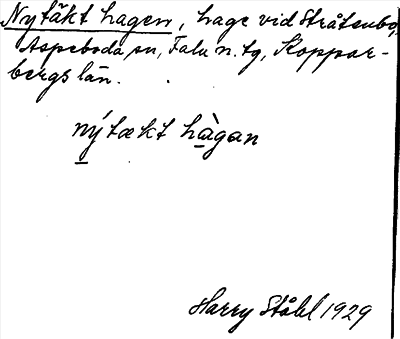 Nytäkt hagen, hage vid Stråtenbo,
Aspeboda sn, Falu n. tg, Koppar-
bergs län.
nýtækt hàgan
Harry Ståhl 1929